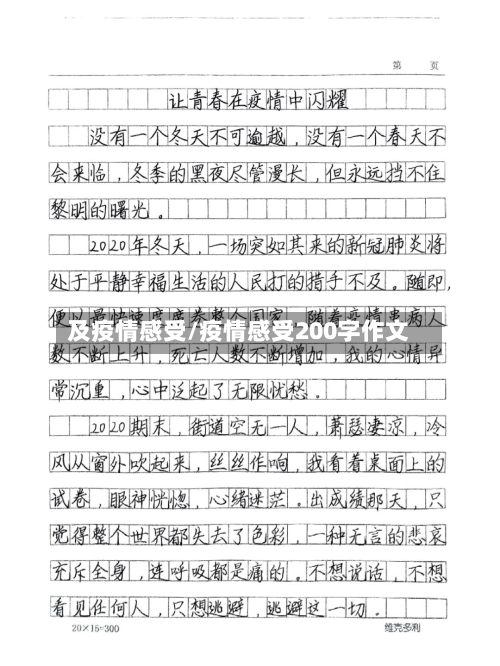 第 页
让青春在疫情中闪耀
没有一个冬天不可逾越，没有一个春天不
会来临，冬季的黑夜尽管漫长，但永远挡不住
黎明的曙光。
2020年冬天，一场突如其来的新冠肺炎将
处于平静幸福生活的人民打的措手不及。随即，
便以最快速度席卷整个国家，随着疫情患病人
及疫情感受/疫情感受200字作文
数不断上升，死亡人数不断增加，我的心情异
常沉重，心中泛起了无限忧愁。
2020期末，街道空无一人，萧瑟凄凉，冷
风从窗外吹起来，丝丝作响，我看着桌面上的
试卷，眼神恍惚，心绪迷茫。出成绩那天，只
觉得整个世界都失去了色彩，一种无言的悲哀
充斥全身，连呼吸都是痛的。不想说话，不想
看见任何人，只想逃避，逃避这一切。
20×15=300 维克多利